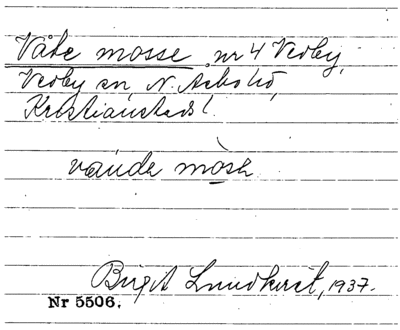 Våke mosse nr 4 Verby,
Verby sn, N. Åsbo hd,
Kristianstads l.
mosse
Birgit Lundkvist, 1937.
Nr 5506.